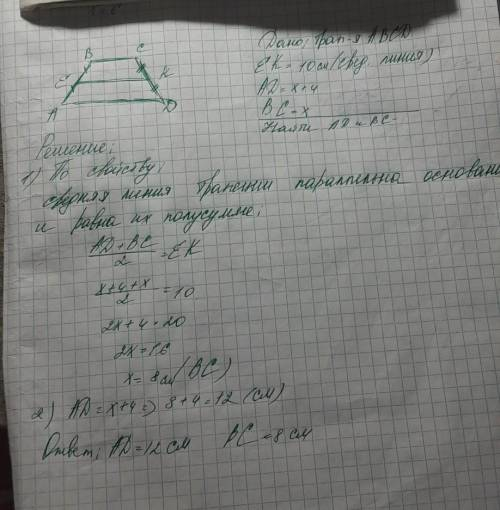 B C
E K
A D
Дано: Трап-я ABCD
EK = 10 см (сред. линия)
AD = x+4
BC = x
Найти AD и BC-
Решение:
1) По свойству:
средняя линия трапеции параллельна основани
и равна их полусумме.
AD+BC
2 = EK
x+4+x
2 = 10
2x+4=20
2x=16
x=8см(BC)
2) AD=x+4=> 8+4=12 (см)
Ответ: AD=12 см BC=8 см